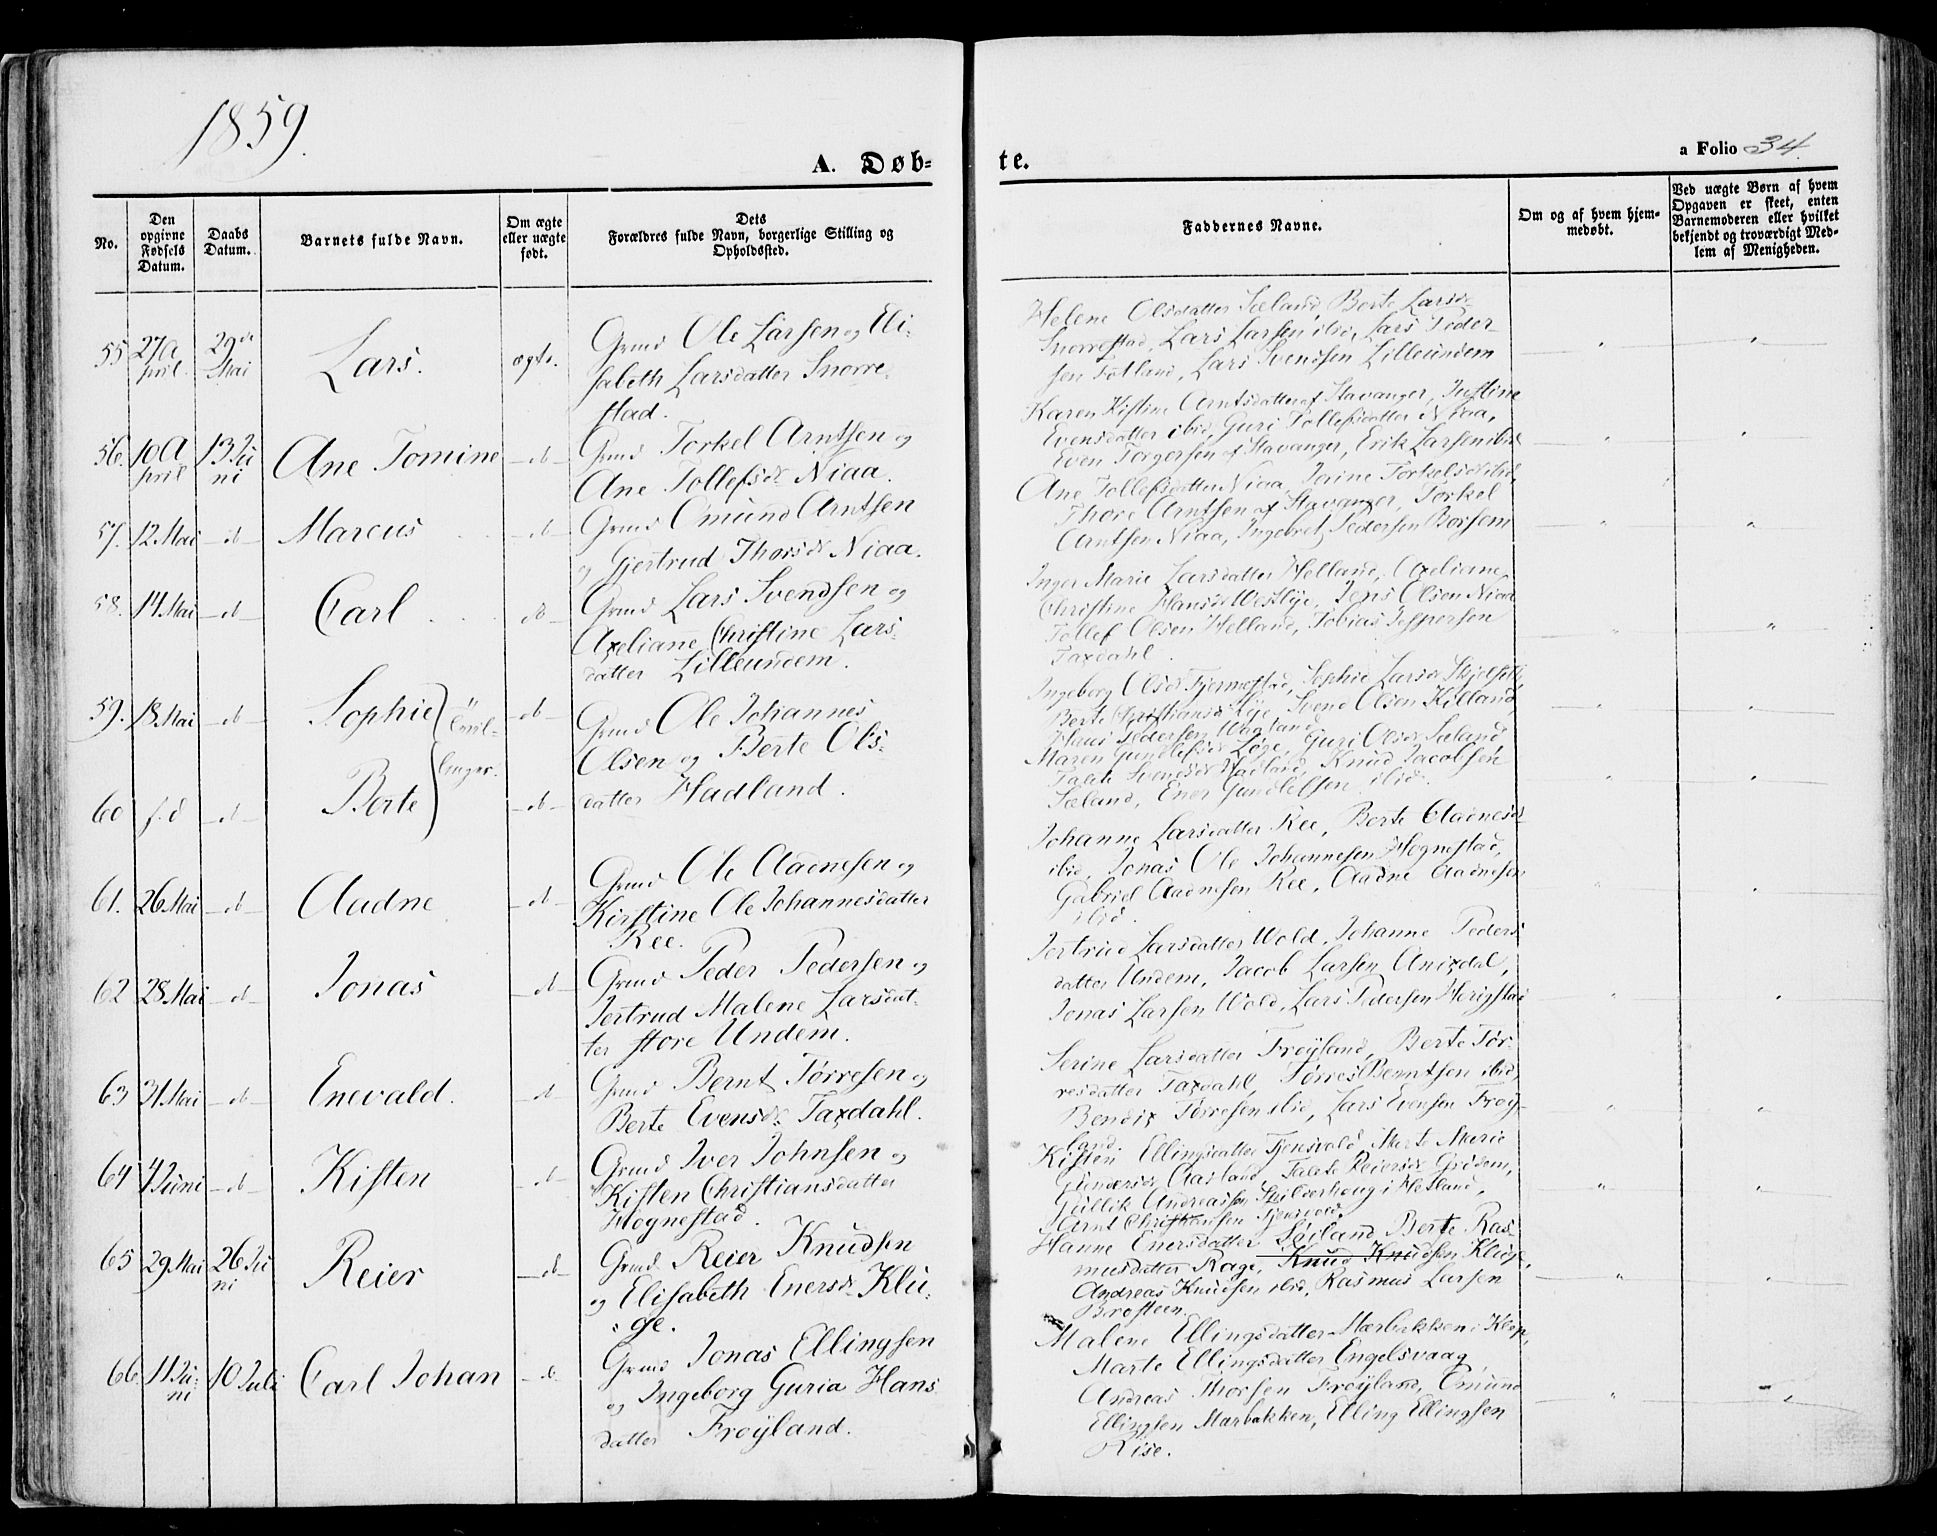 1859.
A. Døb-
te.
a Folio 34.
No.
Den
opgivne
Fødsels
Datum.
Daabs
Datum.
Barnets fulde Navn.
Om ægte
eller uægte
født.
Dets
Forældres fulde Navn, borgerlige Stilling og
Opholdssted.
Faddernes Navne.
Om og af hvem hjem-
medøbt.
Ved uægte Børn af hvem
Opgaven er skeet, enten
Barnemoderen eller hvilket
bekjendt og troværdigt Med-
lem af Menigheden.
55 27 A
pril. 29de
Mai Lars. ægte.
Grmd Ole Larsen og Eli-
sabeth Larsdatter Snorre-
stad.
Helene Olsdatter Sæland, Berte Larsd.
Snorrestad, Lars Larsen ibid, Lars Peder
sen Fotland, Lars Svendsen Lilleundem
56. 10 A
pril 13 Ju
ni Ane Tomine -do-
Grmd Torkel Arntsen og
Ane Tollefsd. Niaa.
Karen Kistine Arntsdatter af Stavanger, Justine
Evensdatter ibid, Guri Tollefsdatter Niaa,
Even Torgersen af Stavanger, Erik Larsen ibid
57. 12 Mai -do- Marcus -do-
Grmd Omund Arntsen
og Gjertrud Thorsd. Niaa.
Ane Tollefsdatter Niaa, Torkelsd. ibid,
Thore Arntsen af Stavanger, Torkel
Arntsen Niaa, Ingebret Pedersen Borsem
58. 14 Mai -do- Carl -do-
Grmd Lars Svendsen og
Axeliane Christine Lars-
datter Lilleundem.
Inger Marie Larsdatter Helland, Axeliane
Christine Hansd. Westlye, Jens Olsen Niaa
Tollef Olsen Helland, Tobias Jespersen
Taxdahl.
59. 18 Mai -do- Sophie " -do-
Tvil-
linger.
Grmd Ole Johannes
Olsen og Berte Ols-
datter Hadland.
Ingeborg Olsd. Tjermestad, Sophie Larsd.
Berte Christiansd. Lye, Svend Olsen Killand,
Hans Pedersen Wagland
60 s. d -do- Berte -do-
Maren Gundlefsd. Guri Olsd. Sæland
Svendsd. Hadland, Knud Jacobsen
Sæland, Ener Gundlefsen ibid.
61. 26 Mai -do- Aadne -do-
Grmd Ole Aadnesen og
Kirstine Ole Johannesdatter
Ree.
Johanne Larsdatter Ree, Berte Aadnesd.
ibid, Jonas Ole Johannesen Hognestad,
Gabriel Aadnesen Ree, Aadne Aadnesen
ibid.
62 28 Mai -do- Jonas -do-
Grmd Peder Pedersen og
Jertrud Malene Larsdat-
ter store Undem.
Jertrud Larsdatter Wold, Johanne Peders
datter Undem, Jacob Larsen Anixdal,
Jonas Larsen Wold, Lars Pedersen Herigstad
63 31 Mai -do- Enevald. -do-
Grmd Bernt Tørresen og
Berte Evensd. Taxdahl.
Serine Larsdatter Frøyland, Berte Tør-
resdatter Taxdahl, Tørres Berntsen ibid,
Bendix Tørresen ibid, Lars Evensen Frøy-
land.
64 4 Juni -do- Kisten -do-
Grmd Iver Johnsen og
Kisten Christiansdatter
Hognestad.
Kisten Ellingsdatter Tjensvold, Marte Marie
Gundersd. Aasland, Reiersd. Grødem,
Gullik Andreassen Skilderhoug i Hetland,
Arnt Christiansen Tjensvold.
65 29 Mai 26 Ju
ni Reier -do-
Grmd Reier Knudsen
og Elisabeth Enersd. Klu-
ge.
Hanne Enersdatter Søiland, Berte Ras-
musdatter Rage, Knud Knudsen Klepp,
Andreas Knudsen ibid, Rasmus Larsen
Brosteen.
66. 11 Ju-
ni 10 Juli Carl Johan -do-
Grmd Jonas Ellingsen
og Ingeborg Guria Hans
datter Frøyland.
Malene Ellingsdatter Mærbakken i Klep,
Marte Ellingsdatter Engelsvaag,
Andreas Thorsen Frøyland, Omund
Ellingsen Marbakken, Elling Ellingsen
Rise.